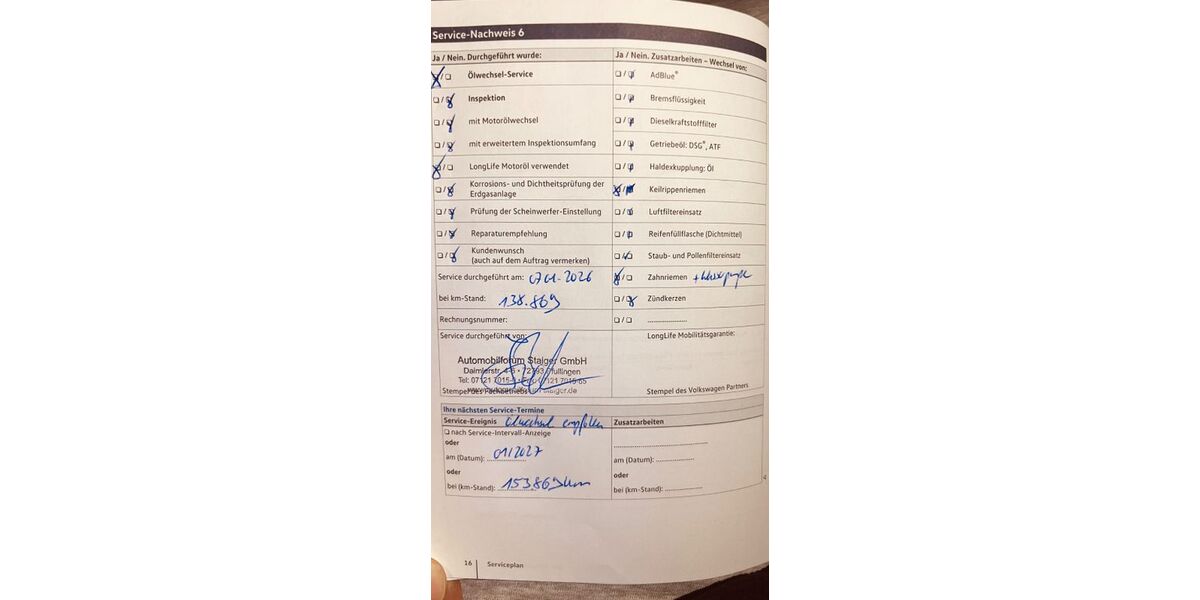 Service-Nachweis 6
Ja / Nein. Durchgeführt wurde:
Ölwechsel-Service
Inspektion
mit Motorölwechsel
mit erweitertem Inspektionsumfang
LongLife Motoröl verwendet
Korrosions- und Dichtheitsprüfung der
Erdgasanlage
Prüfung der Scheinwerfer-Einstellung
Reparaturempfehlung
Kundenwunsch
(auch auf dem Auftrag vermerken)
Service durchgeführt am: 07.01.2026
bei km-Stand: 138.869
Rechnungsnummer:
Service durchgeführt von:
Automobilforum Staiger GmbH
Daimlerstr. 4-6 • 72793 Pfullingen
Tel: 07121 7015-
Stempel des Fachbetriebs
Ja / Nein. Zusatzarbeiten – Wechsel von:
AdBlue®
Bremsflüssigkeit
Dieselkraftstofffilter
Getriebeöl: DSG®, ATF
Haldexkupplung: Öl
Keilrippenriemen
Luftfiltereinsatz
Reifenfüllflasche (Dichtmittel)
Staub- und Pollenfiltereinsatz
Zahnriemen
Zündkerzen
LongLife Mobilitätsgarantie:
Stempel des Volkswagen Partners
Ihre nächsten Service-Termine
Service-Ereignis Ölwechsel empfohlen
nach Service-Intervall-Anzeige
oder
am (Datum): 01/2027
oder
bei (km-Stand): 153869km
Zusatzarbeiten
am (Datum):
oder
bei (km-Stand):
16
Serviceplan